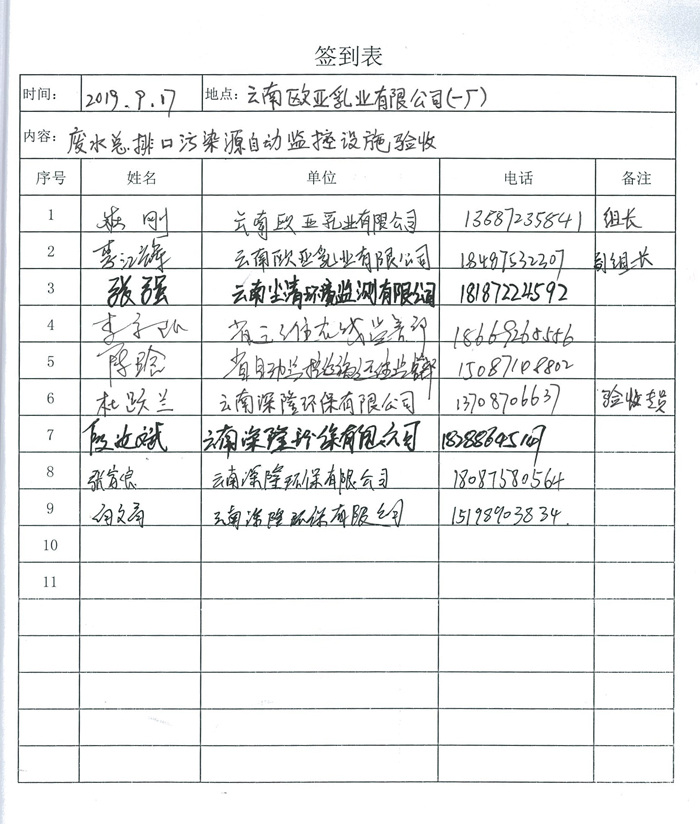 签到表
时间： 2019.9.17 地点：云南欧亚乳业有限公司(一厂)
内容：废水总排口污染源自动监控设施验收
序号 姓名 单位 电话 备注
1 刚 云南欧亚乳业有限公司 13687235841 组长
2 李江 云南欧亚乳业有限公司 18497532307 副组长
3 张强 云南尘清环境监测有限公司 18187224592
4 李 18669265556
5 陈 省自动监控 15087108802
6 杜跃兰 云南深隆环保有限公司 13708706637 验收专员
7 段 云南深隆环保有限公司
8 张 云南深隆环保有限公司 18087580564
9 云南深隆环保有限公司 15198903834.
10
11